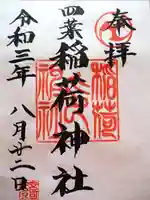 奉拝
四葉
稲荷神社
令和三年
八月廿二日